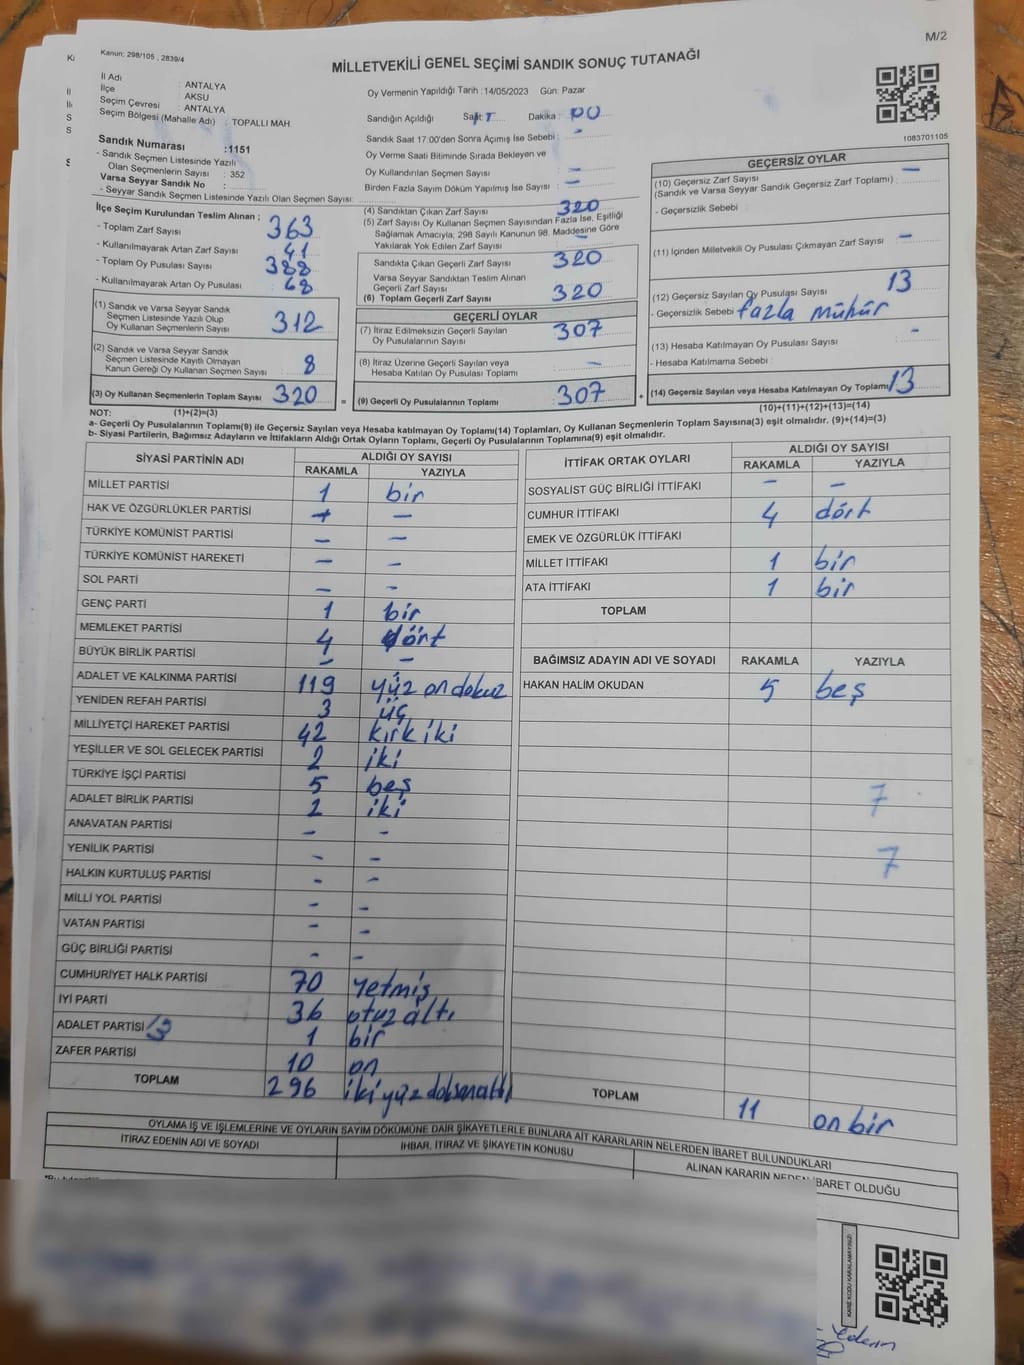 M/2
Kanun; 298/105 , 2839/4
MİLLETVEKİLİ GENEL SEÇİMİ SANDIK SONUÇ TUTANAĞI
İl Adı : ANTALYA
İlçe : AKSU
Seçim Çevresi : ANTALYA
Seçim Bölgesi (Mahalle Adı) : TOPALLI MAH.
Oy Vermenin Yapıldığı Tarih :14/05/2023 Gün: Pazar
Sandığın Açıldığı Saat : Dakika : 00
Sandık Saat 17:00'den Sonra Açımış İse Sebebi : -
Oy Verme Saati Bitiminde Sırada Bekleyen ve
Oy Kullandırılan Seçmen Sayısı : -
Birden Fazla Sayım Döküm Yapılmış İse Sayısı : -
1083701105
Sandık Numarası :1151
- Sandık Seçmen Listesinde Yazılı
Olan Seçmenlerin Sayısı : 352
Varsa Seyyar Sandık No :
- Seyyar Sandık Seçmen Listesinde Yazılı Olan Seçmen Sayısı:
İlçe Seçim Kurulundan Teslim Alınan ;
- Toplam Zarf Sayısı 363
- Kullanılmayarak Artan Zarf Sayısı 41
- Toplam Oy Pusulası Sayısı 388
- Kullanılmayarak Artan Oy Pusulası 68
(1) Sandık ve Varsa Seyyar Sandık
Seçmen Listesinde Yazılı Olup
Oy Kullanan Seçmenlerin Sayısı 312
(2) Sandık ve Varsa Seyyar Sandık
Seçmen Listesinde Kayıtlı Olmayan
Kanun Gereği Oy Kullanan Seçmen Sayısı 8
(3) Oy Kullanan Seçmenlerin Toplam Sayısı 320 =
(4) Sandıktan Çıkan Zarf Sayısı 320
(5) Zarf Sayısı Oy Kullanan Seçmen Sayısından Fazla İse, Eşitliği
Sağlamak Amacıyla, 298 Sayılı Kanunun 98. Maddesine Göre
Yakılarak Yok Edilen Zarf Sayısı : -
Sandıkta Çıkan Geçerli Zarf Sayısı 320
Varsa Seyyar Sandıktan Teslim Alınan
Geçerli Zarf Sayısı
(6) Toplam Geçerli Zarf Sayısı 320
GEÇERLİ OYLAR
(7) İtiraz Edilmeksizin Geçerli Sayılan
Oy Pusulalarının Sayısı 307
(8) İtiraz Üzerine Geçerli Sayılan veya
Hesaba Katılan Oy Pusulası Toplamı -
(9) Geçerli Oy Pusulalarının Toplamı 307 +
GEÇERSİZ OYLAR
(10) Geçersiz Zarf Sayısı
(Sandık ve Varsa Seyyar Sandık Geçersiz Zarf Toplamı) : -
- Geçersizlik Sebebi
(11) İçinden Milletvekili Oy Pusulası Çıkmayan Zarf Sayısı -
(12) Geçersiz Sayılan Oy Pusulası Sayısı 13
- Geçersizlik Sebebi fazla mühür
(13) Hesaba Katılmayan Oy Pusulası Sayısı -
- Hesaba Katılmama Sebebi :
(14) Geçersiz Sayılan veya Hesaba Katılmayan Oy Toplamı 13
(10)+(11)+(12)+(13)=(14)
NOT: (1)+(2)=(3)
a- Geçerli Oy Pusulalarının Toplamı(9) ile Geçersiz Sayılan veya Hesaba katılmayan Oy Toplamı(14) Toplamları, Oy Kullanan Seçmenlerin Toplam Sayısına(3) eşit olmalıdır. (9)+(14)=(3)
b- Siyasi Partilerin, Bağımsız Adayların ve İttifakların Aldığı Ortak Oyların Toplamı, Geçerli Oy Pusulalarının Toplamına(9) eşit olmalıdır.
SİYASİ PARTİNİN ADI ALDIĞI OY SAYISI
RAKAMLA YAZIYLA
MİLLET PARTİSİ 1 bir
HAK VE ÖZGÜRLÜKLER PARTİSİ - -
TÜRKİYE KOMÜNİST PARTİSİ - -
TÜRKİYE KOMÜNİST HAREKETİ - -
SOL PARTİ - -
GENÇ PARTİ 1 bir
MEMLEKET PARTİSİ 4 dört
BÜYÜK BİRLİK PARTİSİ - -
ADALET VE KALKINMA PARTİSİ 119 yüz on dokuz
YENİDEN REFAH PARTİSİ 3 üç
MİLLİYETÇİ HAREKET PARTİSİ 42 kırk iki
YEŞİLLER VE SOL GELECEK PARTİSİ 2 iki
TÜRKİYE İŞÇİ PARTİSİ 5 beş
ADALET BİRLİK PARTİSİ 2 iki
ANAVATAN PARTİSİ - -
YENİLİK PARTİSİ - -
HALKIN KURTULUŞ PARTİSİ - -
MİLLİ YOL PARTİSİ - -
VATAN PARTİSİ - -
GÜÇ BİRLİĞİ PARTİSİ - -
CUMHURİYET HALK PARTİSİ 70 yetmiş
İYİ PARTİ 36 otuz altı
ADALET PARTİSİ 1 bir
ZAFER PARTİSİ 10 on
TOPLAM 296 iki yüz doksan altı
İTTİFAK ORTAK OYLARI ALDIĞI OY SAYISI
RAKAMLA YAZIYLA
SOSYALİST GÜÇ BİRLİĞİ İTTİFAKI - -
CUMHUR İTTİFAKI 4 dört
EMEK VE ÖZGÜRLÜK İTTİFAKI
MİLLET İTTİFAKI 1 bir
ATA İTTİFAKI 1 bir
TOPLAM
BAĞIMSIZ ADAYIN ADI VE SOYADI RAKAMLA YAZIYLA
HAKAN HALİM OKUDAN 5 beş
7
7
TOPLAM 11 on bir
OYLAMA İŞ VE İŞLEMLERİNE VE OYLARIN SAYIM DÖKÜMÜNE DAİR ŞİKAYETLERLE BUNLARA AİT KARARLARIN NELERDEN İBARET BULUNDUKLARI
İTİRAZ EDENİN ADI VE SOYADI
İHBAR, İTİRAZ VE ŞİKAYETİN KONUSU
ALINAN KARARIN NEDEN İBARET OLDUĞU
KARE KODU KARALAMAYINIZ!